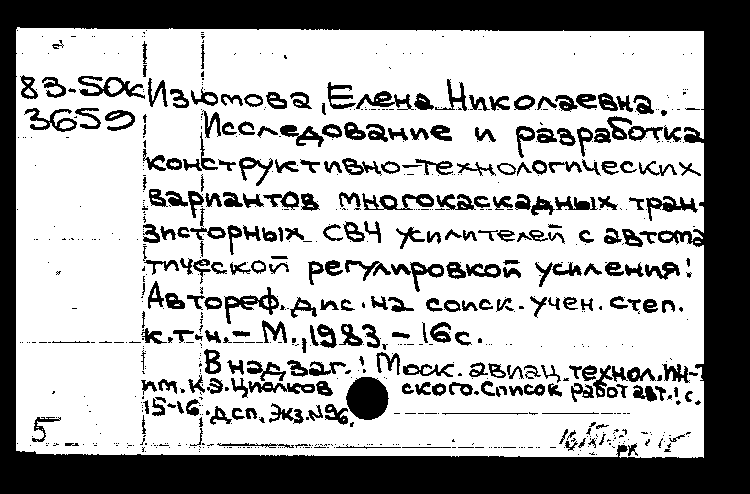 83-50к Изюмова, Елена Николаевна.
3659 Исследование и разработка
конструктивно-технологических
вариантов многокаскадных тран-
зисторных СВЧ усилителей с автома
тической регулировкой усиления!
Автореф. дис. на соиск. учен. степ.
к.т.н. - М., 1983. - 16 с.
В надзаг.! Моск. авиац. технол. ин-т
им. К.Э. Циолков ского. Список работ авт.! с.
15-16. дсп. Экз. N96.
5